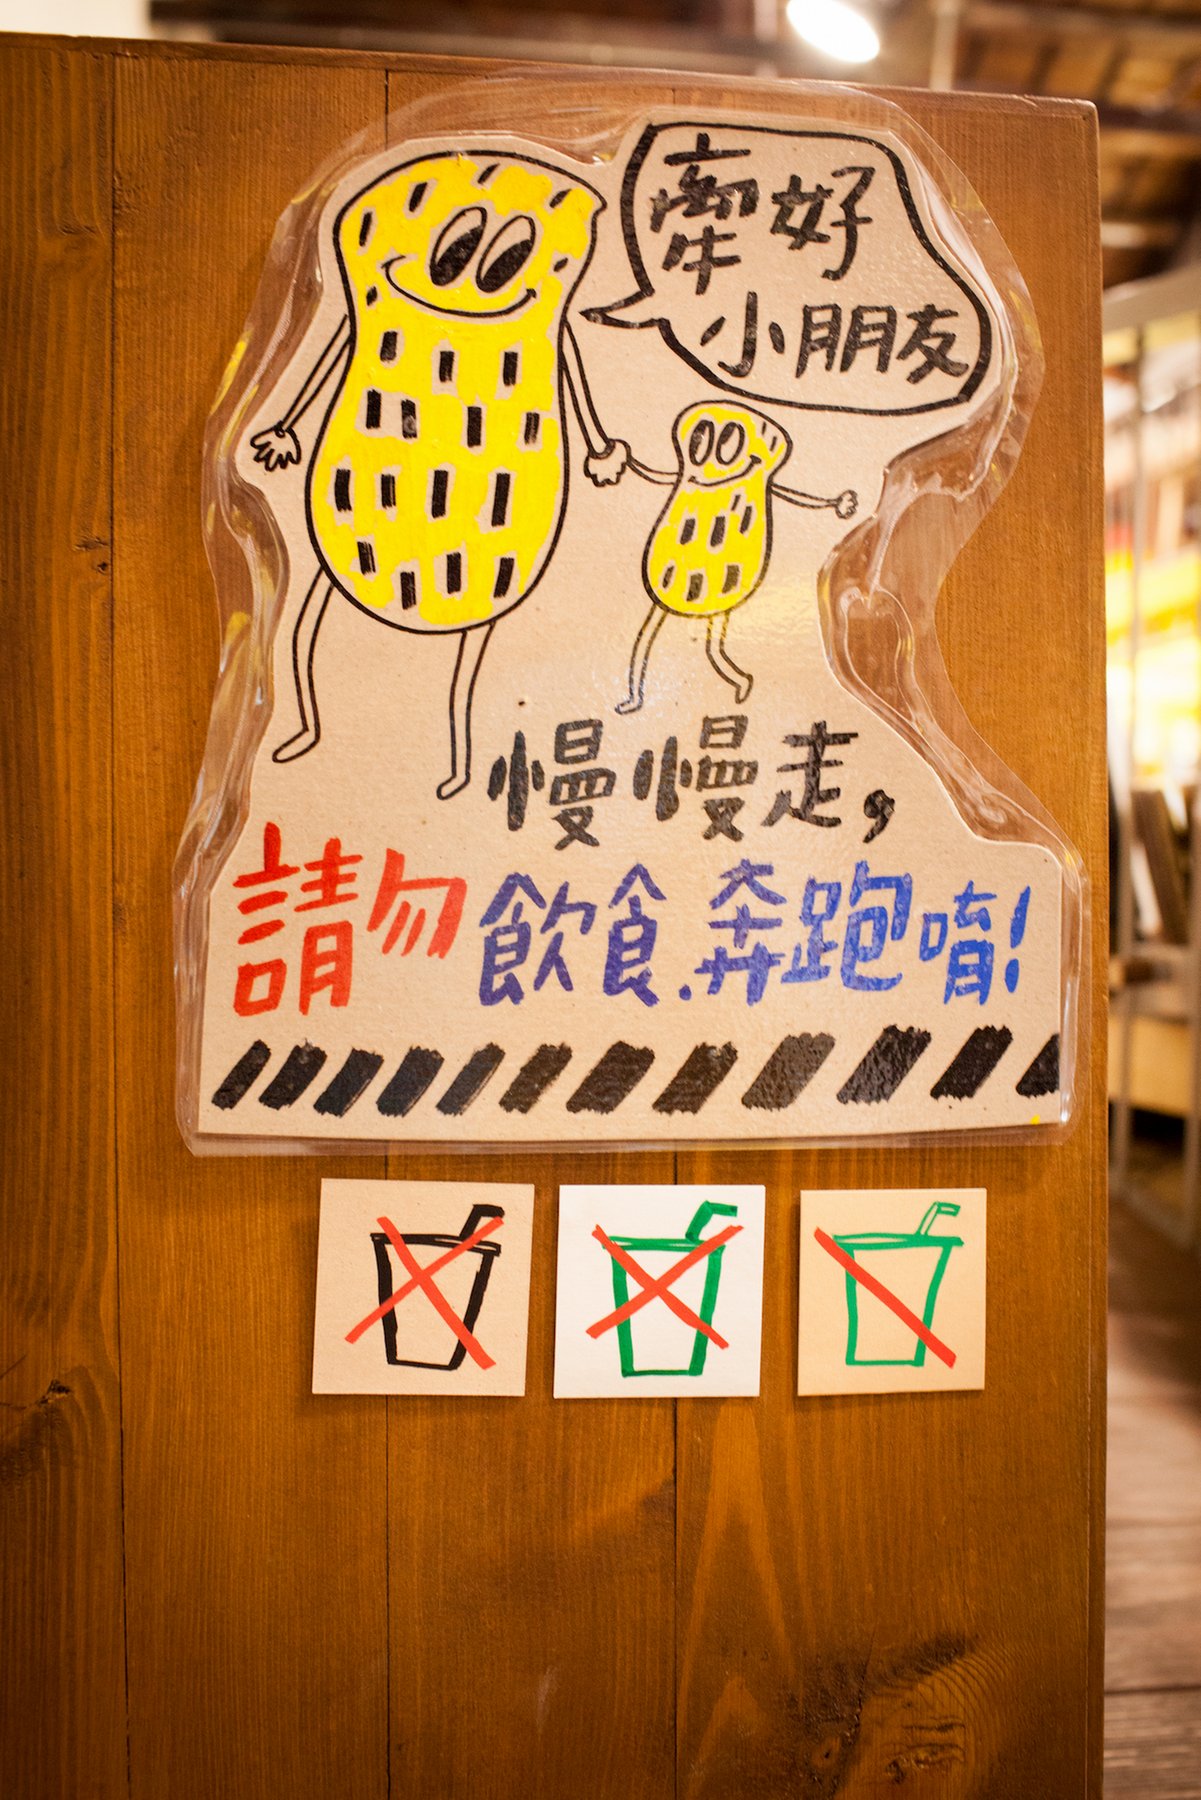 牽好
小朋友
慢慢走,
請勿飲食.奔跑唷!